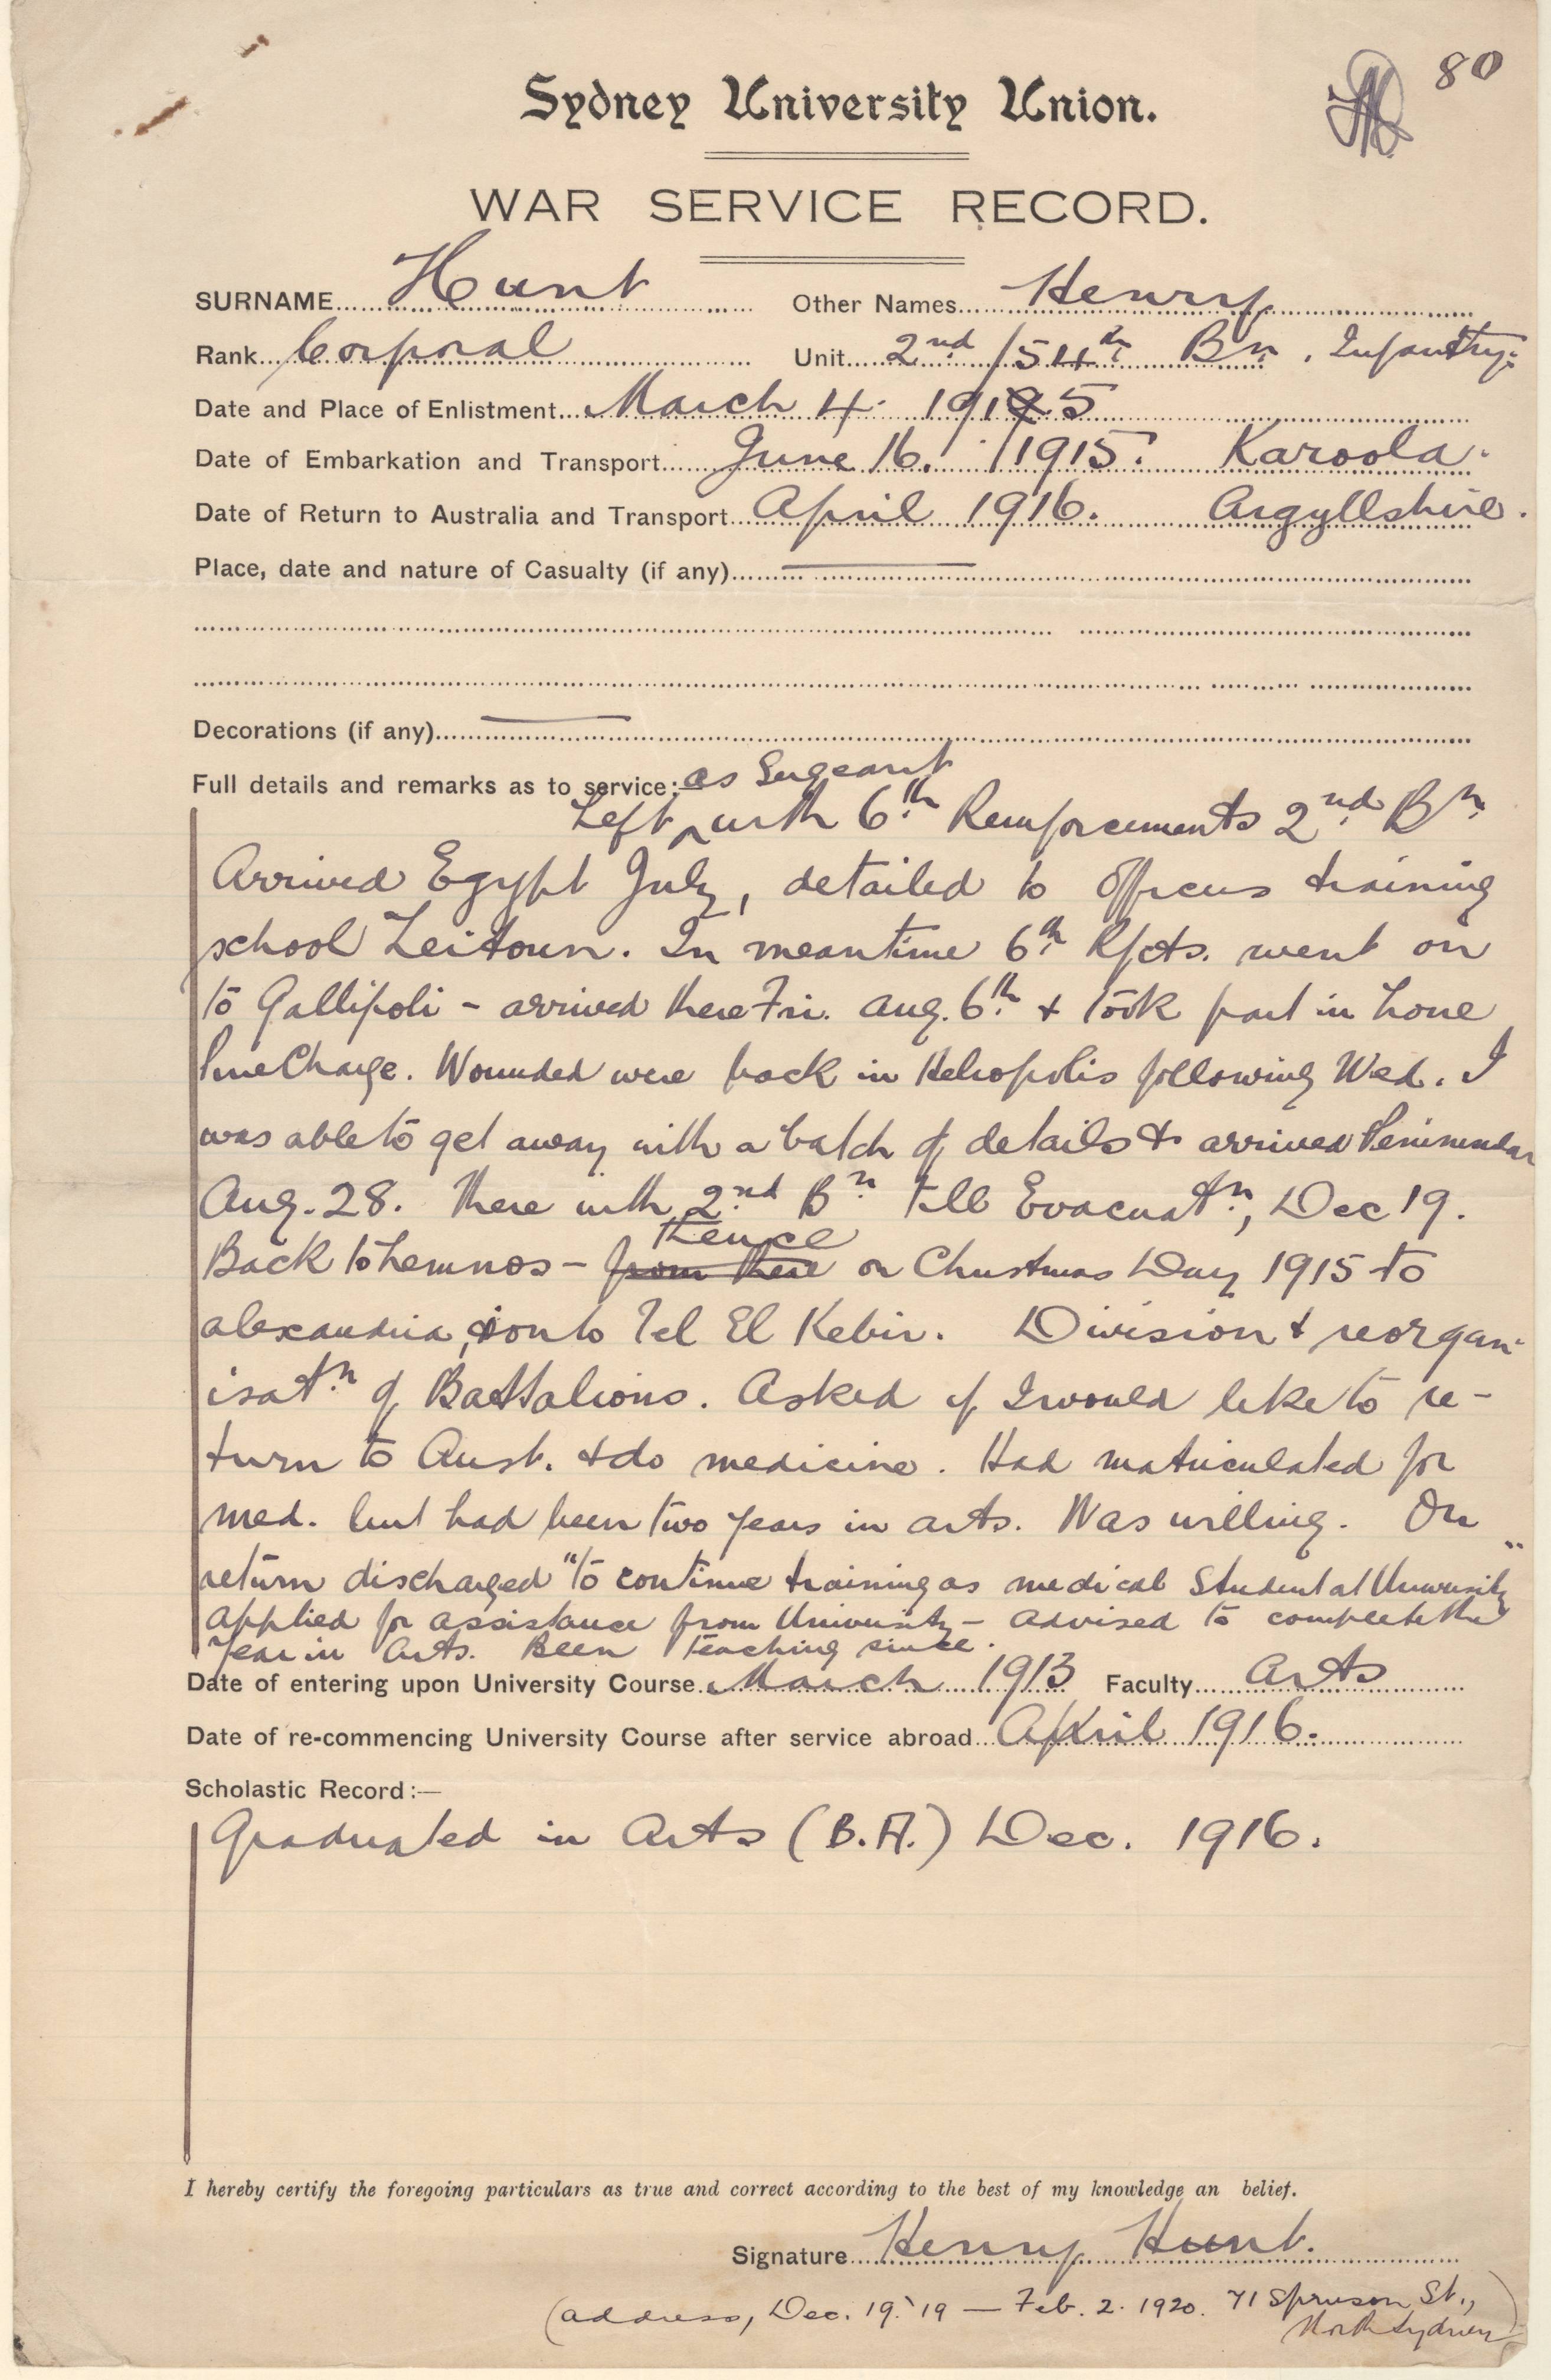 80
Sydney University Union.
WAR SERVICE RECORD.
SURNAME Hunt Other Names Henry
Rank Corporal Unit 2nd/54th Bn. Infantry.
Date and Place of Enlistment March 4. 1915
Date of Embarkation and Transport June 16. 1915. Karoola.
Date of Return to Australia and Transport April 1916. Argyllshire.
Place, date and nature of Casualty (if any) —
Decorations (if any) —
Full details and remarks as to service:— as Sergeant
Left with 6th Reinforcements 2nd Bn
Arrived Egypt July, detailed to Officers training
school Zeitoun. In meantime 6th Rfcts. went on
to Gallipoli - arrived there Fri. Aug. 6th + took part in Lone
Pine Charge. Wounded were back in Heliopolis following Wed. I
was able to get away with a batch of details & arrived Peninsular
Aug. 28. There with 2nd Bn till Evacuatn, Dec 19.
thence
Back to Lemnos - from there on Christmas Day 1915 to
Alexandria, onto Tel El Kebir. Division + reorgan-
isatn of Battalions. Asked if I would like to re-
turn to Aust. + do medicine. Had matriculated for
med. but had been two years in arts. Was willing. On
return discharged "to continue training as medical student at University"
Applied for assistance from University - advised to complete the
Year in Arts. Been teaching since.
Date of entering upon University Course March 1913 Faculty Arts
Date of re-commencing University Course after service abroad April 1916.
Scholastic Record:—
Graduated in Arts (B.A.) Dec. 1916.
I hereby certify the foregoing particulars as true and correct according to the best of my knowledge an belief.
Signature Henry Hunt.
(address, Dec. 19. '19 — Feb. 2. 1920. 71 Spruson St.,
North Sydney)